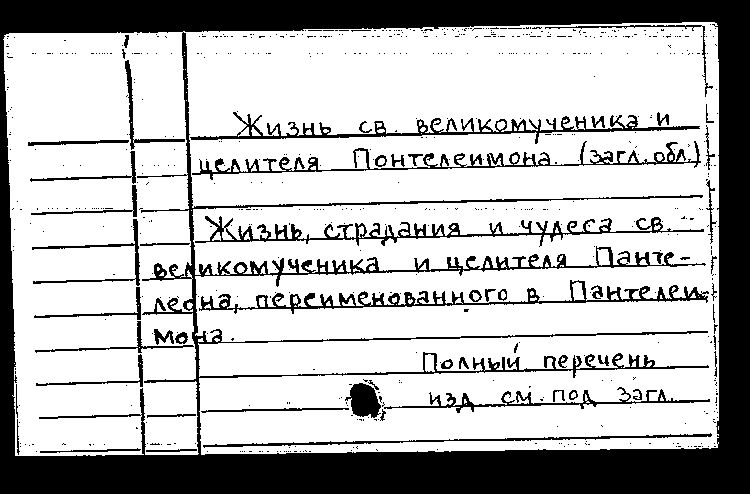 Жизнь св. великомученика и
целителя Понтелеимона. (загл. обл.)
Жизнь, страдания и чудеса св.
великомученика и целителя Панте-
леона, переименованного в Пантелеи-
мона.
Полный перечень
изд. см. под загл.